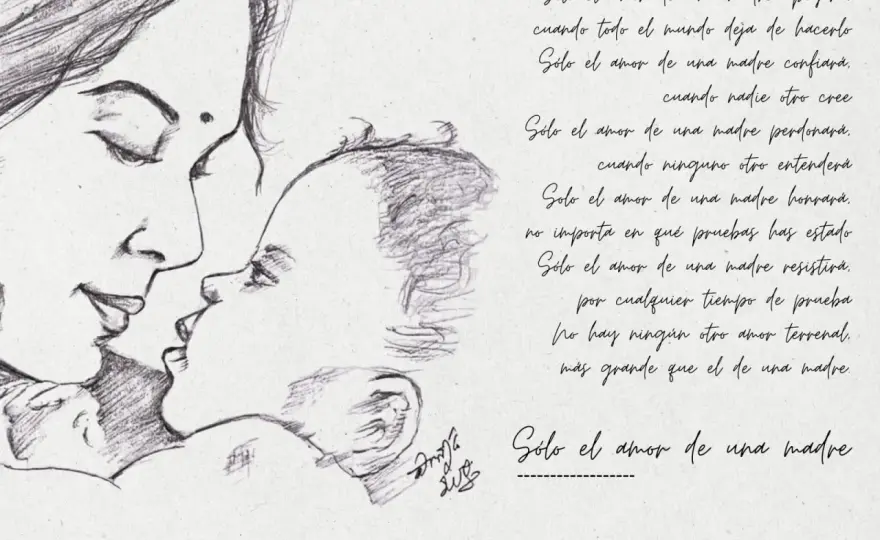 cuando todo el mundo deja de hacerlo
Sólo el amor de una madre confiará,
cuando nadie otro cree
Sólo el amor de una madre perdonará,
cuando ninguno otro entenderá
Solo el amor de una madre honrará,
no importa en qué pruebas has estado
Sólo el amor de una madre resistirá,
por cualquier tiempo de prueba
No hay ningún otro amor terrenal,
más grande que el de una madre.
Sólo el amor de una madre